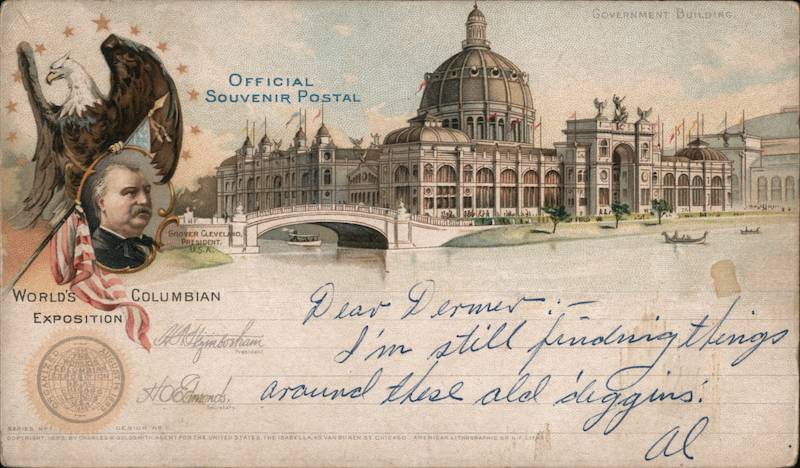 GOVERNMENT BUILDING.
OFFICIAL
SOUVENIR POSTAL
GROVER CLEVELAND,
PRESIDENT,
U.S.A.
WORLD'S COLUMBIAN
EXPOSITION
President
Secretary
Dear Dermer :-
I'm still finding things
around these old 'diggins'.
Al
SERIES No 1. DESIGN No 1.
COPYRIGHT, 1893, BY CHARLES W. GOLDSMITH AGENT FOR THE UNITED STATES, THE ISABELLA, 45 VAN BUREN ST. CHICAGO. AMERICAN LITHOGRAPHIC CO. N.Y. LITHO.